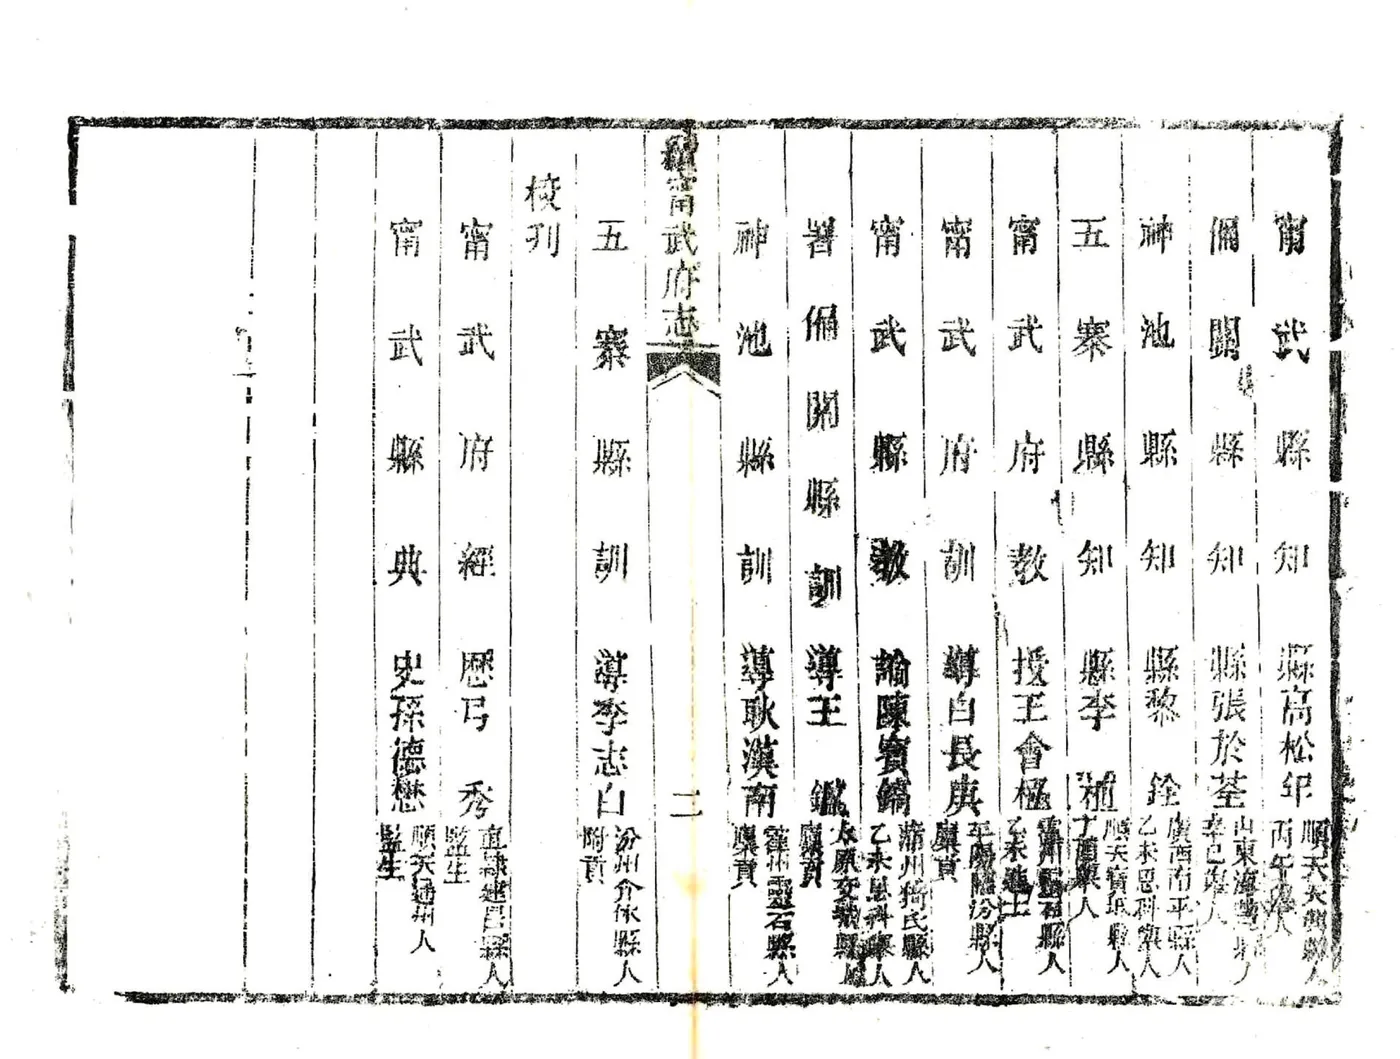 甯武縣知縣高松年順天大興縣人丙午舉人
偏關縣知縣張於荃山東海豐縣人辛巳舉人
神池縣知縣黎銓廣西南平縣人乙未恩科舉人
五寨縣知縣李植順天寶坻縣人丁酉舉人
甯武府教授王會極霍州靈石縣人乙未進士
甯武府訓導白長庚平陽臨汾縣人廩貢
甯武縣教諭陳寶鏞蒲州猗氏縣人乙未恩科舉人
署偏關縣訓導王鑑太原交城縣人廩貢
神池縣訓導耿漢南霍州靈石縣人廩貢
續甯武府志
二
五寨縣訓導李志白汾州介休縣人附貢
校刊
甯武府經歷弓秀直隸建昌縣人監生
甯武縣典史孫德懋順天通州人監生